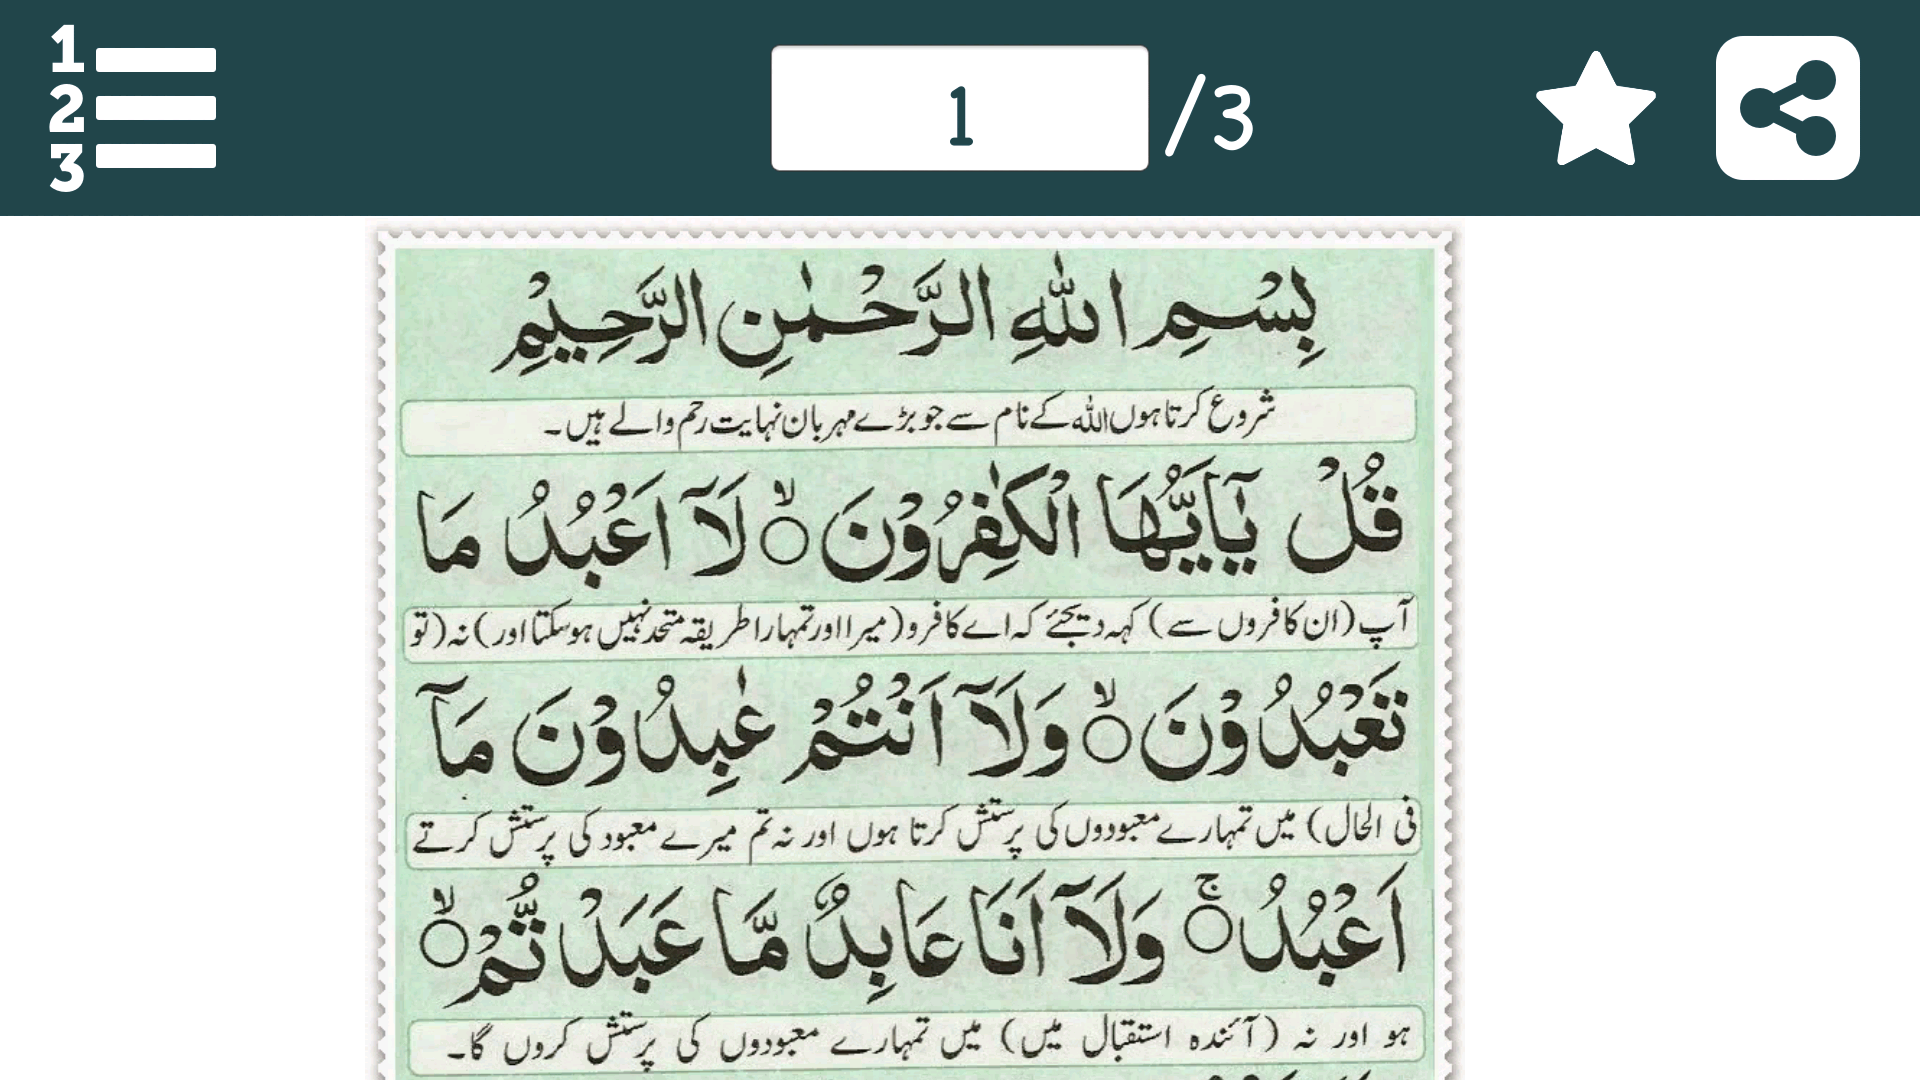 1
2
3
1 /3
بِسْمِ اللّٰهِ الرَّحْمٰنِ الرَّحِيْمِ
شروع کرتا ہوں اللہ کے نام سے جو بڑے مہربان نہایت رحم والے ہیں۔
قُلْ يٰٓاَيُّهَا الْكٰفِرُوْنَ ۙ لَآ اَعْبُدُ مَا
آپ (ان کافروں سے) کہہ دیجئے کہ اے کافرو (میرا اور تمہارا طریقہ متحد نہیں ہو سکتا اور) نہ (تو
تَعْبُدُوْنَ ۙ وَلَآ اَنْتُمْ عٰبِدُوْنَ مَآ
فی الحال) میں تمہارے معبودوں کی پرستش کرتا ہوں اور نہ تم میرے معبود کی پرستش کرتے
اَعْبُدُ ۚ وَلَآ اَنَا عَابِدٌ مَّا عَبَدْتُّمْ ۙ
ہو اور نہ (آئندہ استقبال میں) میں تمہارے معبودوں کی پرستش کروں گا۔